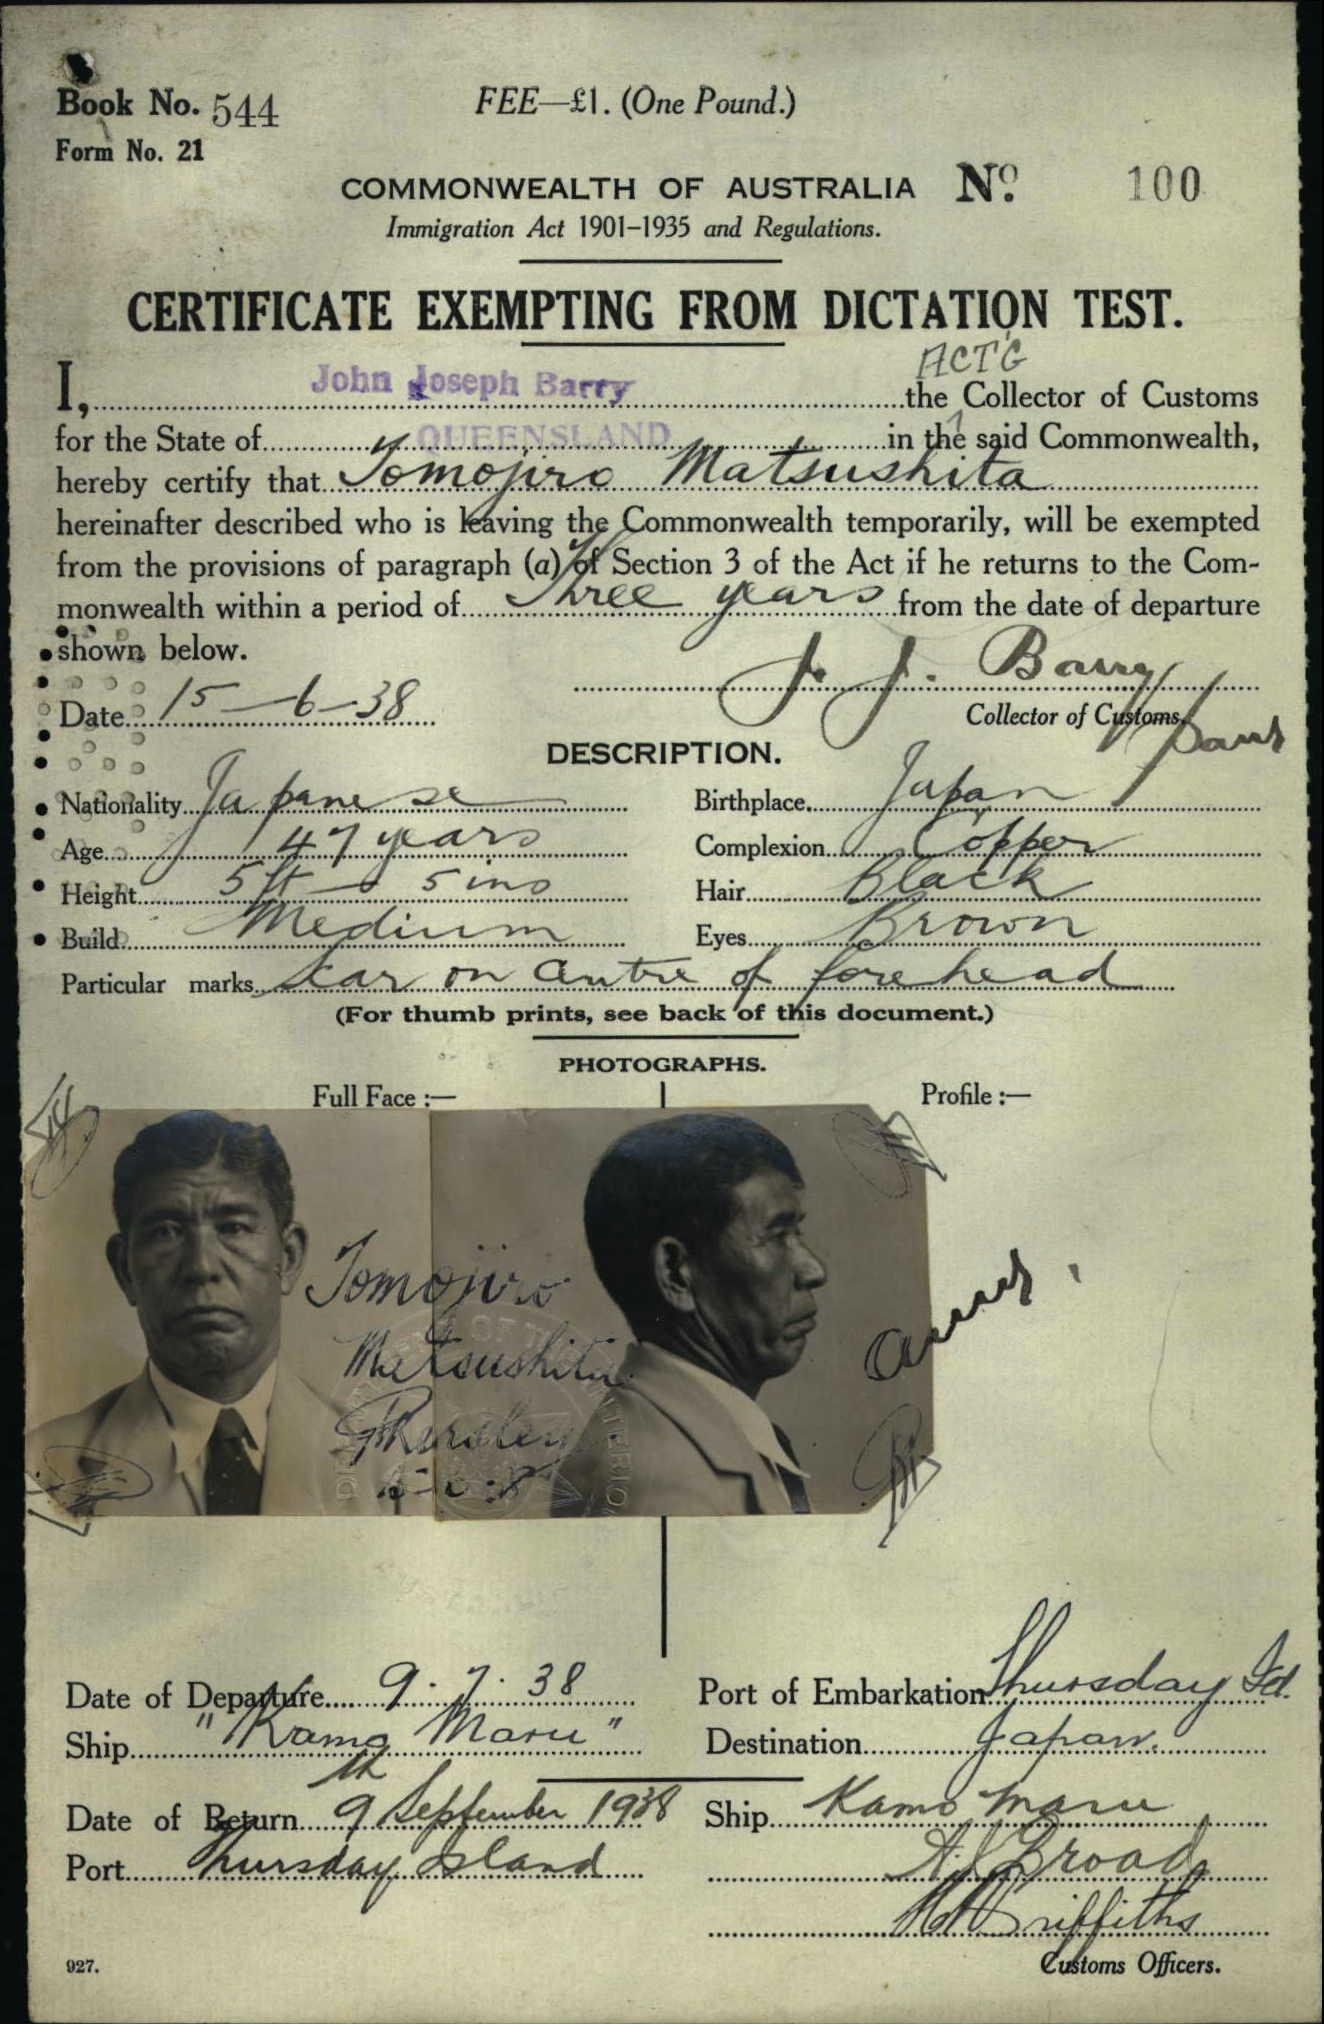 Book No. 544
FEE—£1. (One Pound.)
Form No. 21
COMMONWEALTH OF AUSTRALIA No. 100
Immigration Act 1901–1935 and Regulations.
CERTIFICATE EXEMPTING FROM DICTATION TEST.
ACTG
I, John Joseph Barry the Collector of Customs
for the State of QUEENSLAND in the said Commonwealth,
hereby certify that Tomojiro Matsushita
hereinafter described who is leaving the Commonwealth temporarily, will be exempted
from the provisions of paragraph (a) of Section 3 of the Act if he returns to the Com-
monwealth within a period of Three years from the date of departure
shown below.
J. J. Barry
Date 15-6-38
Collector of Customs.
DESCRIPTION.
Nationality Japanese
Birthplace Japan
Age 47 years
Complexion Copper
Height 5ft - 5 ins
Hair Black
Build Medium
Eyes Brown
Particular marks Scar on centre of forehead
(For thumb prints, see back of this document.)
PHOTOGRAPHS.
Full Face :—
Profile :—
Tomojiro
Matsushita
Date of Departure 9. 7. 38
Port of Embarkation Thursday Id.
Ship "Kamo Maru"
Destination Japan.
Date of Return 9th September 1938
Ship Kamo Maru
Port Thursday Island
Broad
Griffiths
927.
Customs Officers.